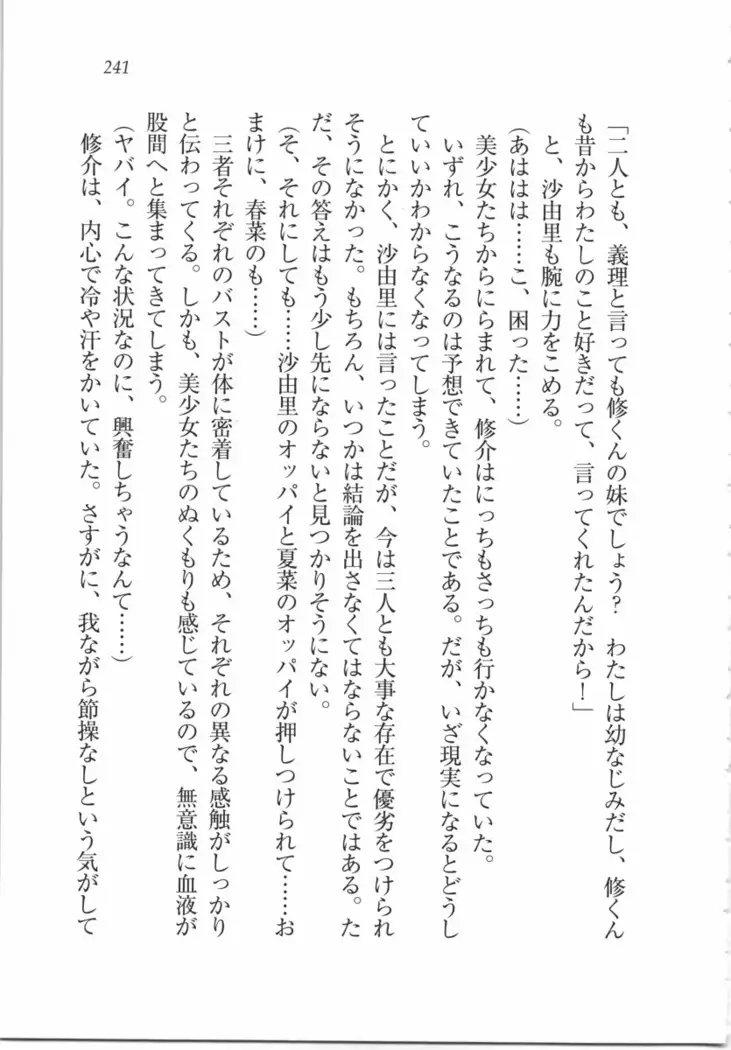 241
「二人とも、義理と言っても修くんの妹でしょう？　わたしは幼なじみだし、修くん
も昔からわたしのこと好きだって、言ってくれたんだから！」
と、沙由里も腕に力をこめる。
（あははは……こ、困った……）
美少女たちからにらまれて、修介はにっちもさっちも行かなくなっていた。
いずれ、こうなるのは予想できていたことである。だが、いざ現実になるとどうし
ていいかわからなくなってしまう。
とにかく、沙由里には言ったことだが、今は三人とも大事な存在で優劣をつけられ
そうになかった。もちろん、いつかは結論を出さなくてはならないことではある。た
だ、その答えはもう少し先にならないと見つかりそうにない。
（そ、それにしても……沙由里のオッパイと夏菜のオッパイが押しつけられて……お
まけに、春菜のも……）
三者それぞれのバストが体に密着しているため、それぞれの異なる感触がしっかり
と伝わってくる。しかも、美少女たちのぬくもりも感じているので、無意識に血液が
股間へと集まってきてしまう。
（ヤバイ。こんな状況なのに、興奮しちゃうなんて……）
修介は、内心で冷や汗をかいていた。さすがに、我ながら節操なしという気がして